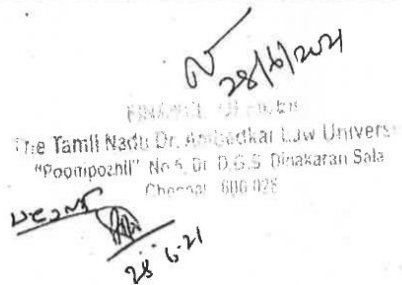 28/6/2021
FINANCE OFFICER
The Tamil Nadu Dr. Ambedkar Law Univers
"Poompozhil" No.5, Dr. D.G.S. Dinakaran Sala
Chennai 600 028
28.6.21